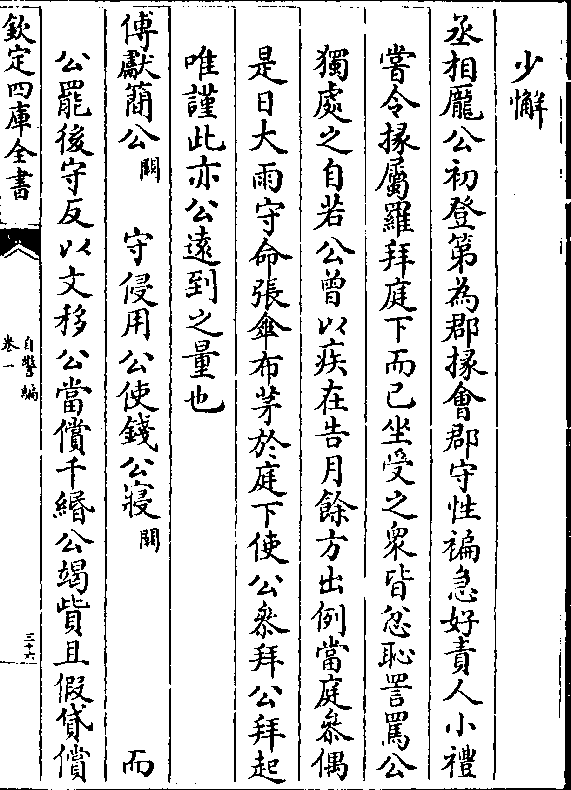 少懈
丞相龐公初登第為郡掾會郡守性褊急好責人小禮
嘗令掾屬羅拜庭下而已坐受之衆皆忿恥詈罵公
獨處之自若公曾以疾在告月餘方出例當庭叅偶
是日大雨守命張傘布茅於庭下使公叅拜公拜起
唯謹此亦公遠到之量也
傅獻簡公闕守侵用公使錢公寢闕而
公罷後守反以文移公當償千緡公竭貲且假貸償
欽定四庫全書
自警編
卷一
三十六